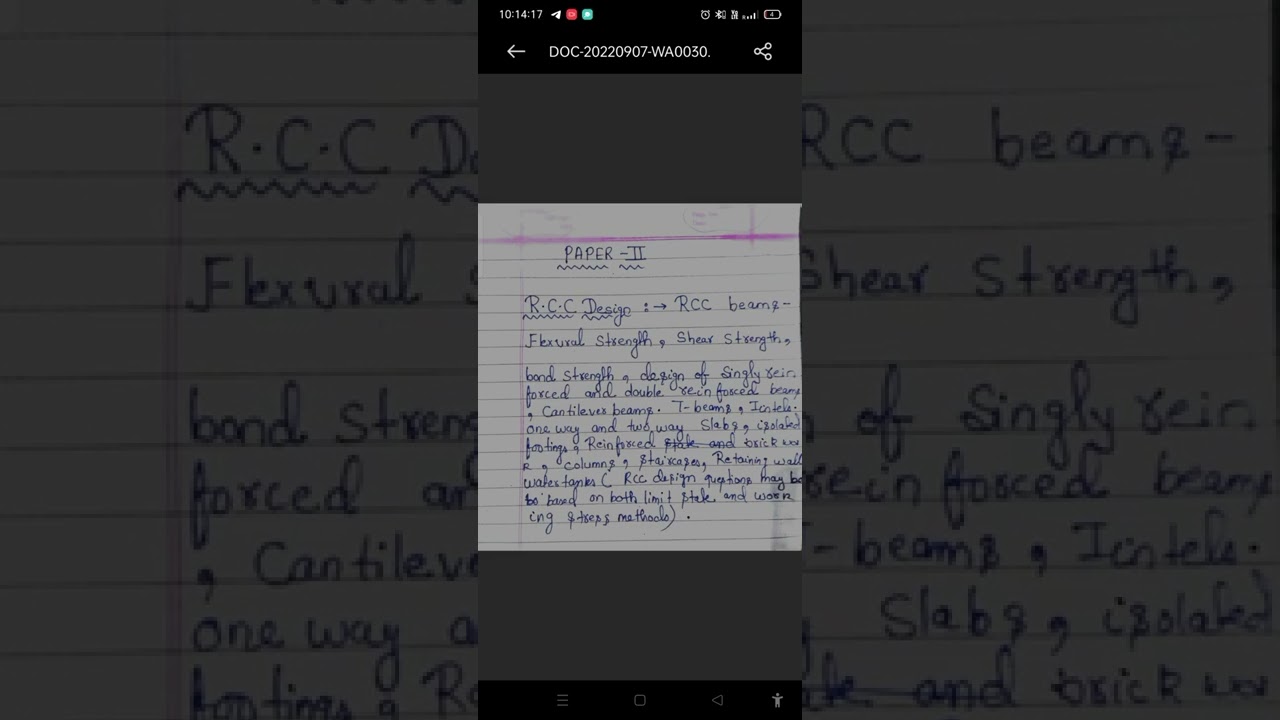 10:14:17
DOC-20220907-WA0030.
PAPER - II
R.C.C Design :→ RCC beams -
Flexural Strength, Shear Strength,
bond Strength, design of Singly rein
forced and double reinforced beams
, Cantilever beams. T-beams, Lintels.
one way and two way Slabs, isolated
footings, Reinforced and brick wor
k, columns, Staircases, Retaining wall
water tanks ( RCC design questions may be
be based on both limit state and work
ing stress methods) .